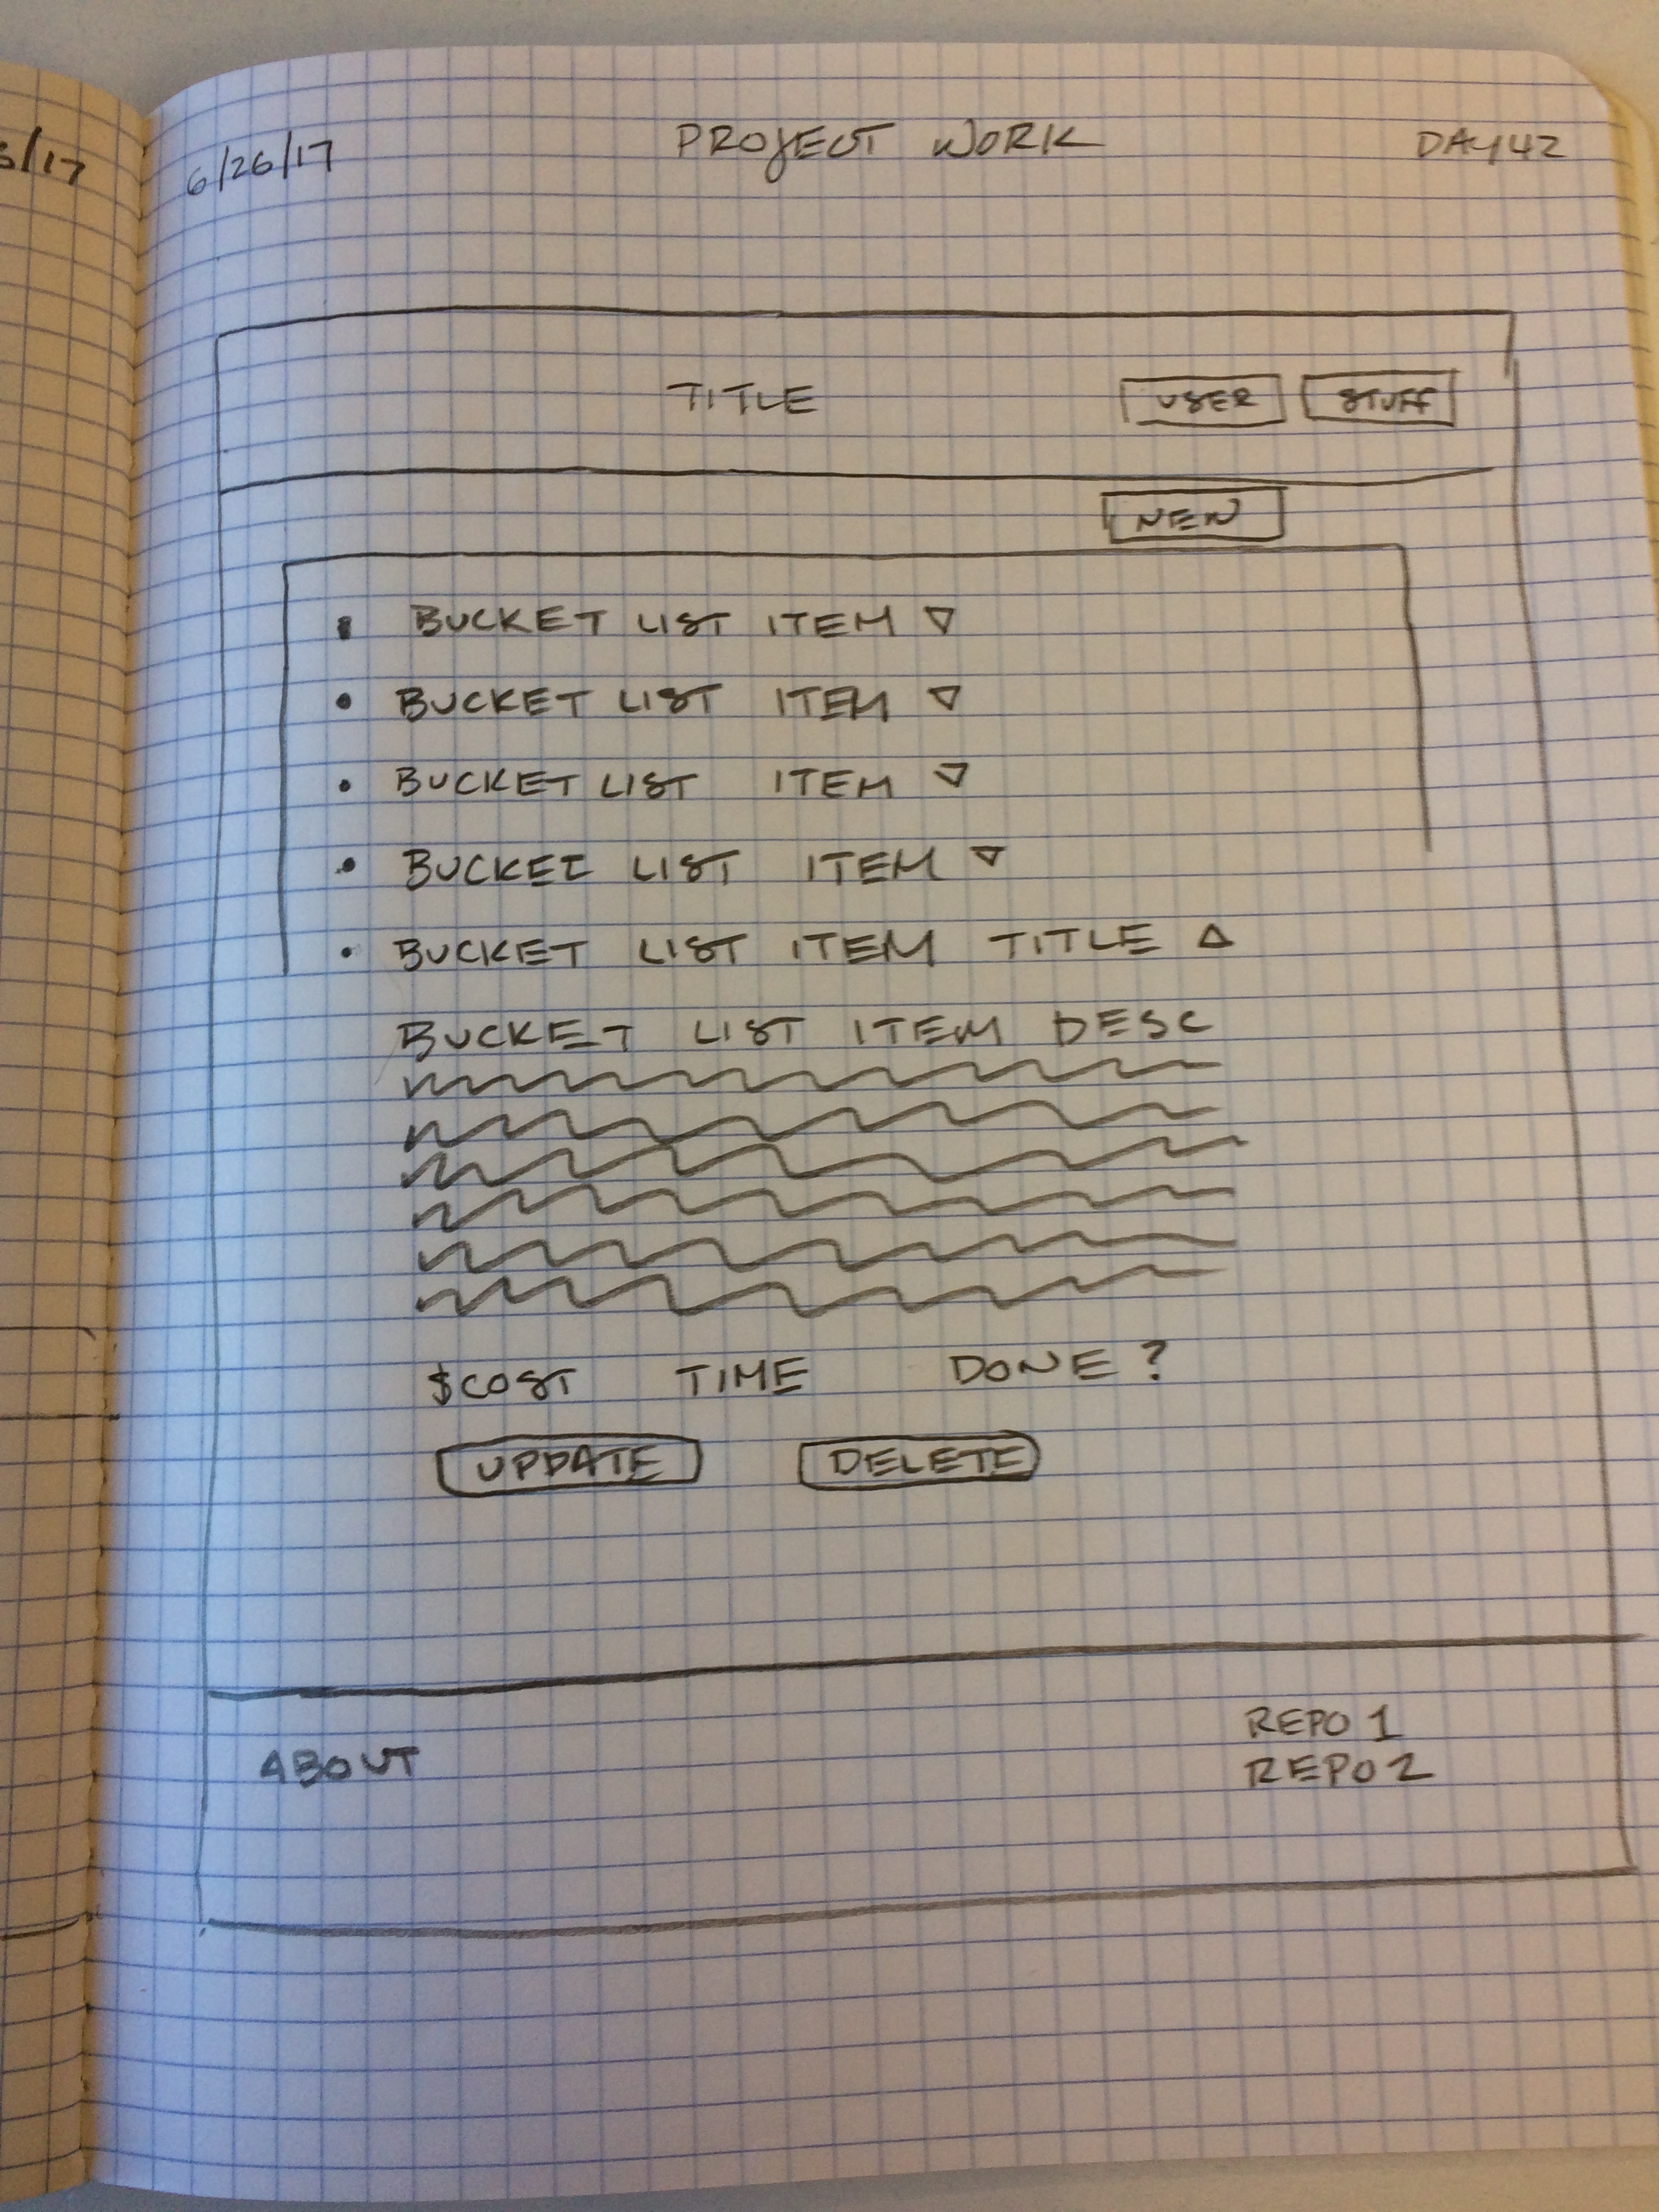 5/17
6/26/17 PROJECT WORK DAY 42
TITLE USER STUFF
NEW
• BUCKET LIST ITEM ▽
• BUCKET LIST ITEM ▽
• BUCKET LIST ITEM ▽
• BUCKET LIST ITEM ▽
• BUCKET LIST ITEM TITLE △
BUCKET LIST ITEM DESC
$COST TIME DONE?
UPDATE DELETE
REPO 1
ABOUT
REPO 2